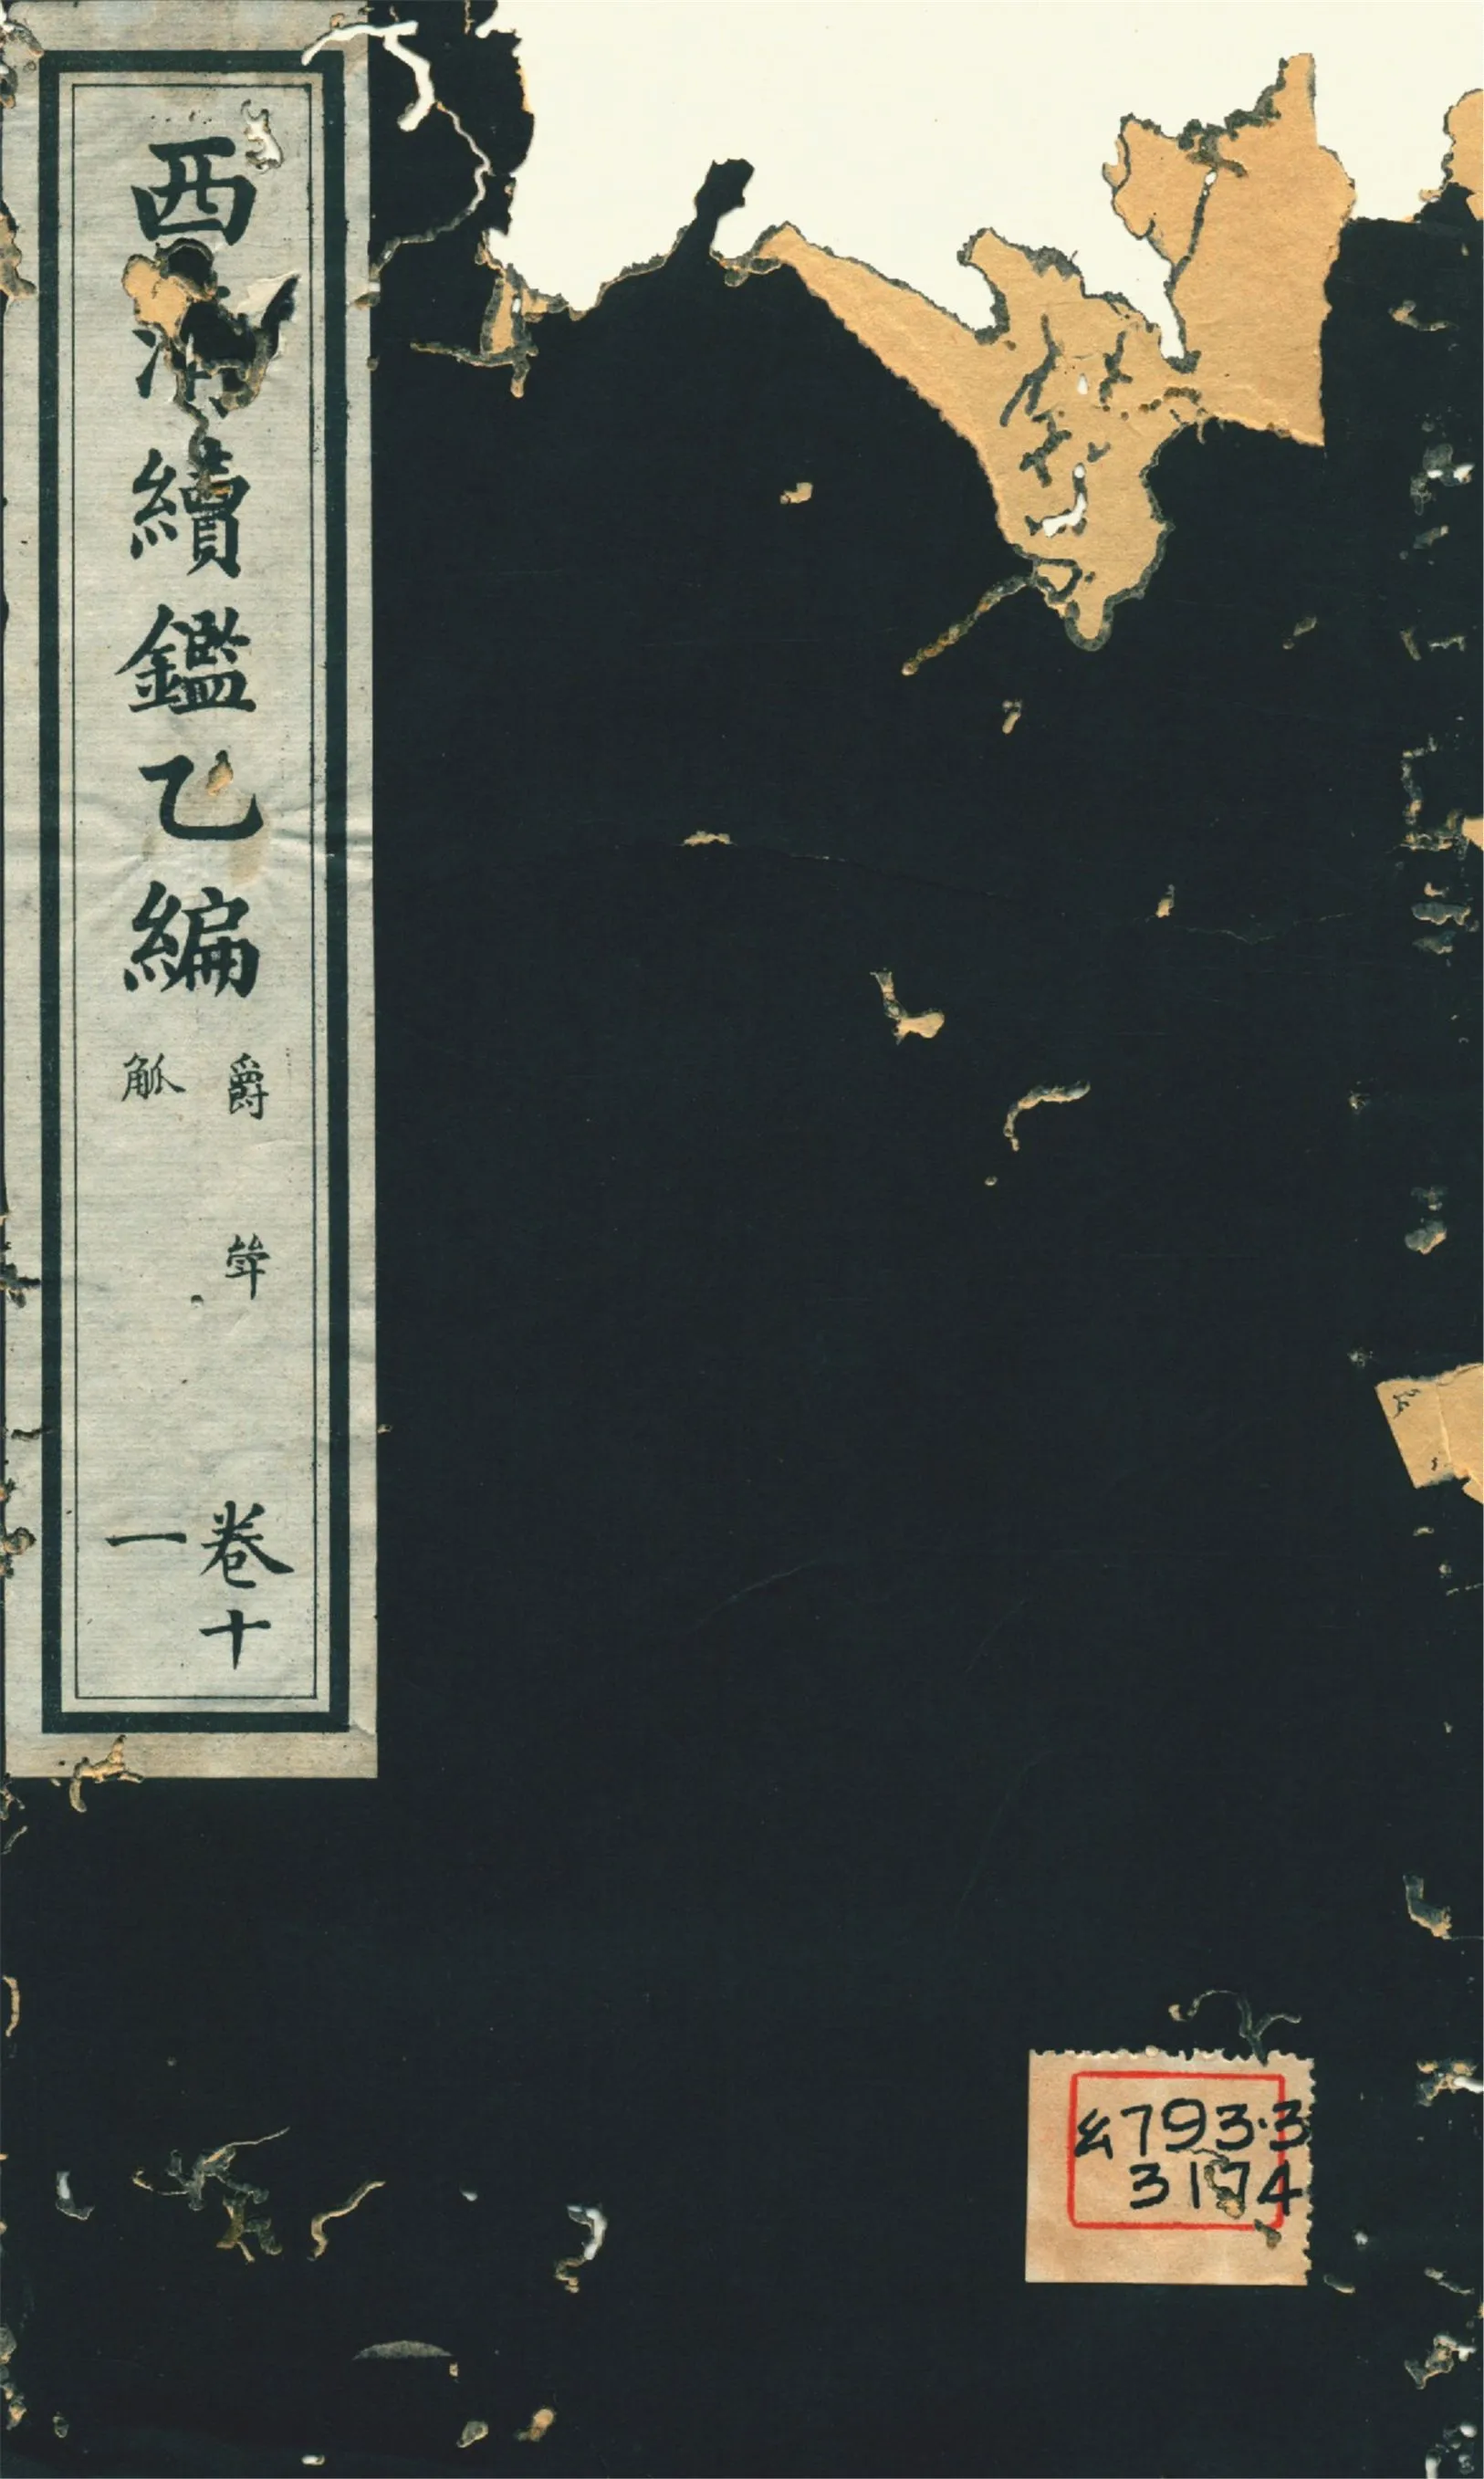 西清續鑑乙編
爵 斝
觚
卷十
一
793·3
3174